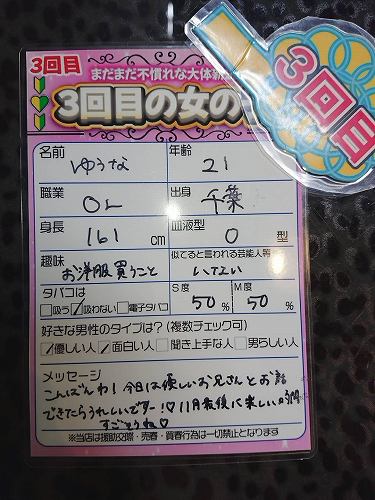 3回目
まだまだ不慣れな大体
3回目の女の
3回目
名前 ゆうな 年齢 21
職業 OL 出身 千葉
身長 161 cm 血液型 O 型
趣味 お洋服買うこと 似てると言われる芸能人等
タバコは 吸う 吸わない 電子タバコ S度 50% M度 50%
好きな男性のタイプは?(複数チェック可)
優しい人 面白い人 聞き上手な人 男らしい人
メッセージ
こんばんわ!今日は優しいお兄さんとお話
できたらうれしいですー!♡11月最後に楽しい
すごそうね♡
※当店は援助交際・売春・買春行為は一切禁止となります